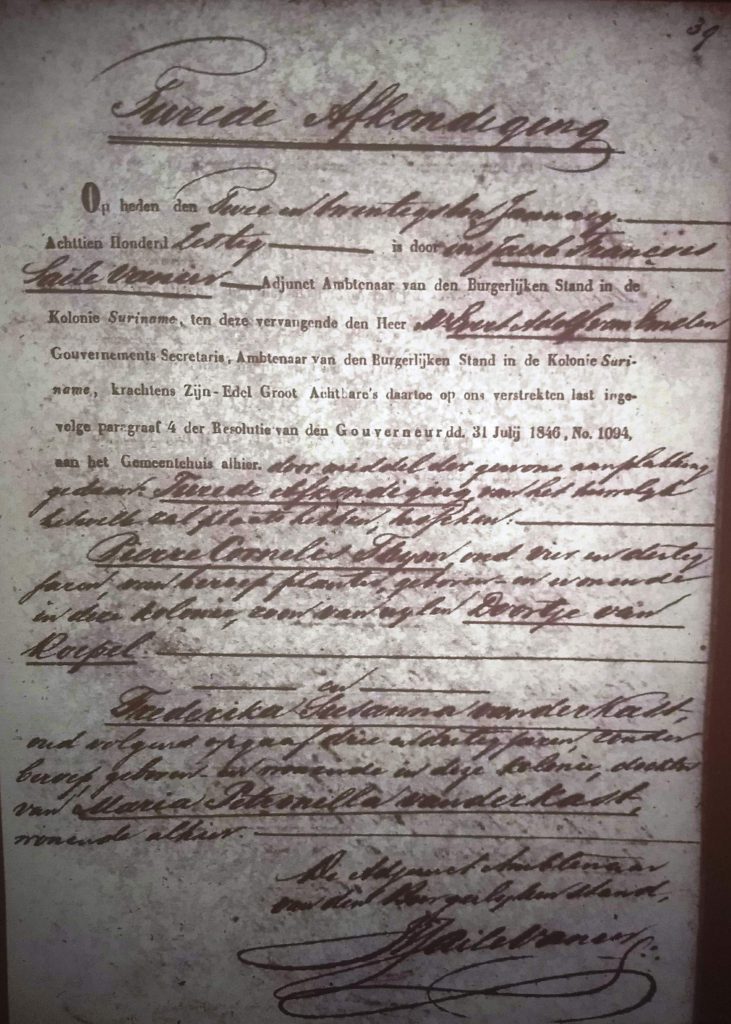 39
Tweede Afkondiging
Op heden den Twee en twintigsten January
Achttien Honderd Zestig is door ons Jacob François
Saile Vanier Adjunct Ambtenaar van den Burgerlijken Stand in de
Kolonie Suriname, ten deze vervangende den Heer Mr Evert Adolf van Emden
Gouvernements Secretaris, Ambtenaar van den Burgerlijken Stand in de Kolonie Suri-
name, krachtens Zijn-Edel Groot Achtbare's daartoe op ons verstrekten last inge-
volge paragraaf 4 der Resolutie van den Gouverneur dd. 31 Julij 1846, No. 1094,
aan het Gemeentehuis alhier. door middel der gewone aanplakking
gedaan: Tweede Afkondiging van het huwelijk
hetwelk zal plaats hebben, tusschen:
Pierre Cornelis, oud vier en dertig
jaren, van beroep planter, geboren- en wonende
in deze kolonie, zoon van wijlen Doortje van
Koepel.
en
Frederika Susanna van der Kast,
oud volgens opgaaf drie en dertig jaren, zonder
beroep, geboren- en wonende in deze kolonie, dochter
van Maria Petronella van der Kast,
wonende alhier.
De Adjunct Ambtenaar
van den Burgerlijken Stand,